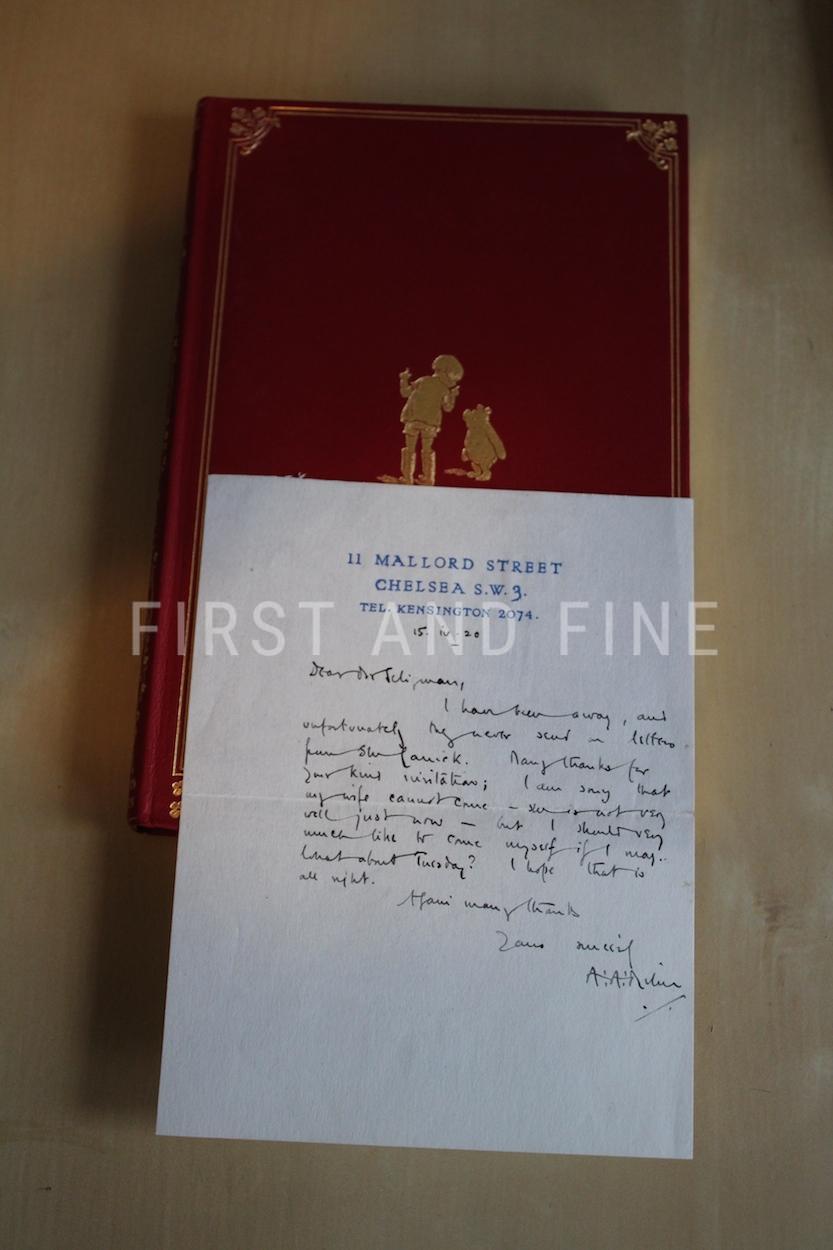 11 MALLORD STREET
CHELSEA S.W.3.
TEL. KENSINGTON 2074.
FIRST AND FINE
15. iv. 20
Dear Seligman,
I have been away, and
unfortunately they never send on letters
from the Garrick. Many thanks for
your kind invitation; I am sorry that
my wife cannot come – she is not very
well just now – but I should very
much like to come myself if I may.
What about Tuesday? I hope that is
all right.
Again many thanks
Yours sincerely
A.A. Milne